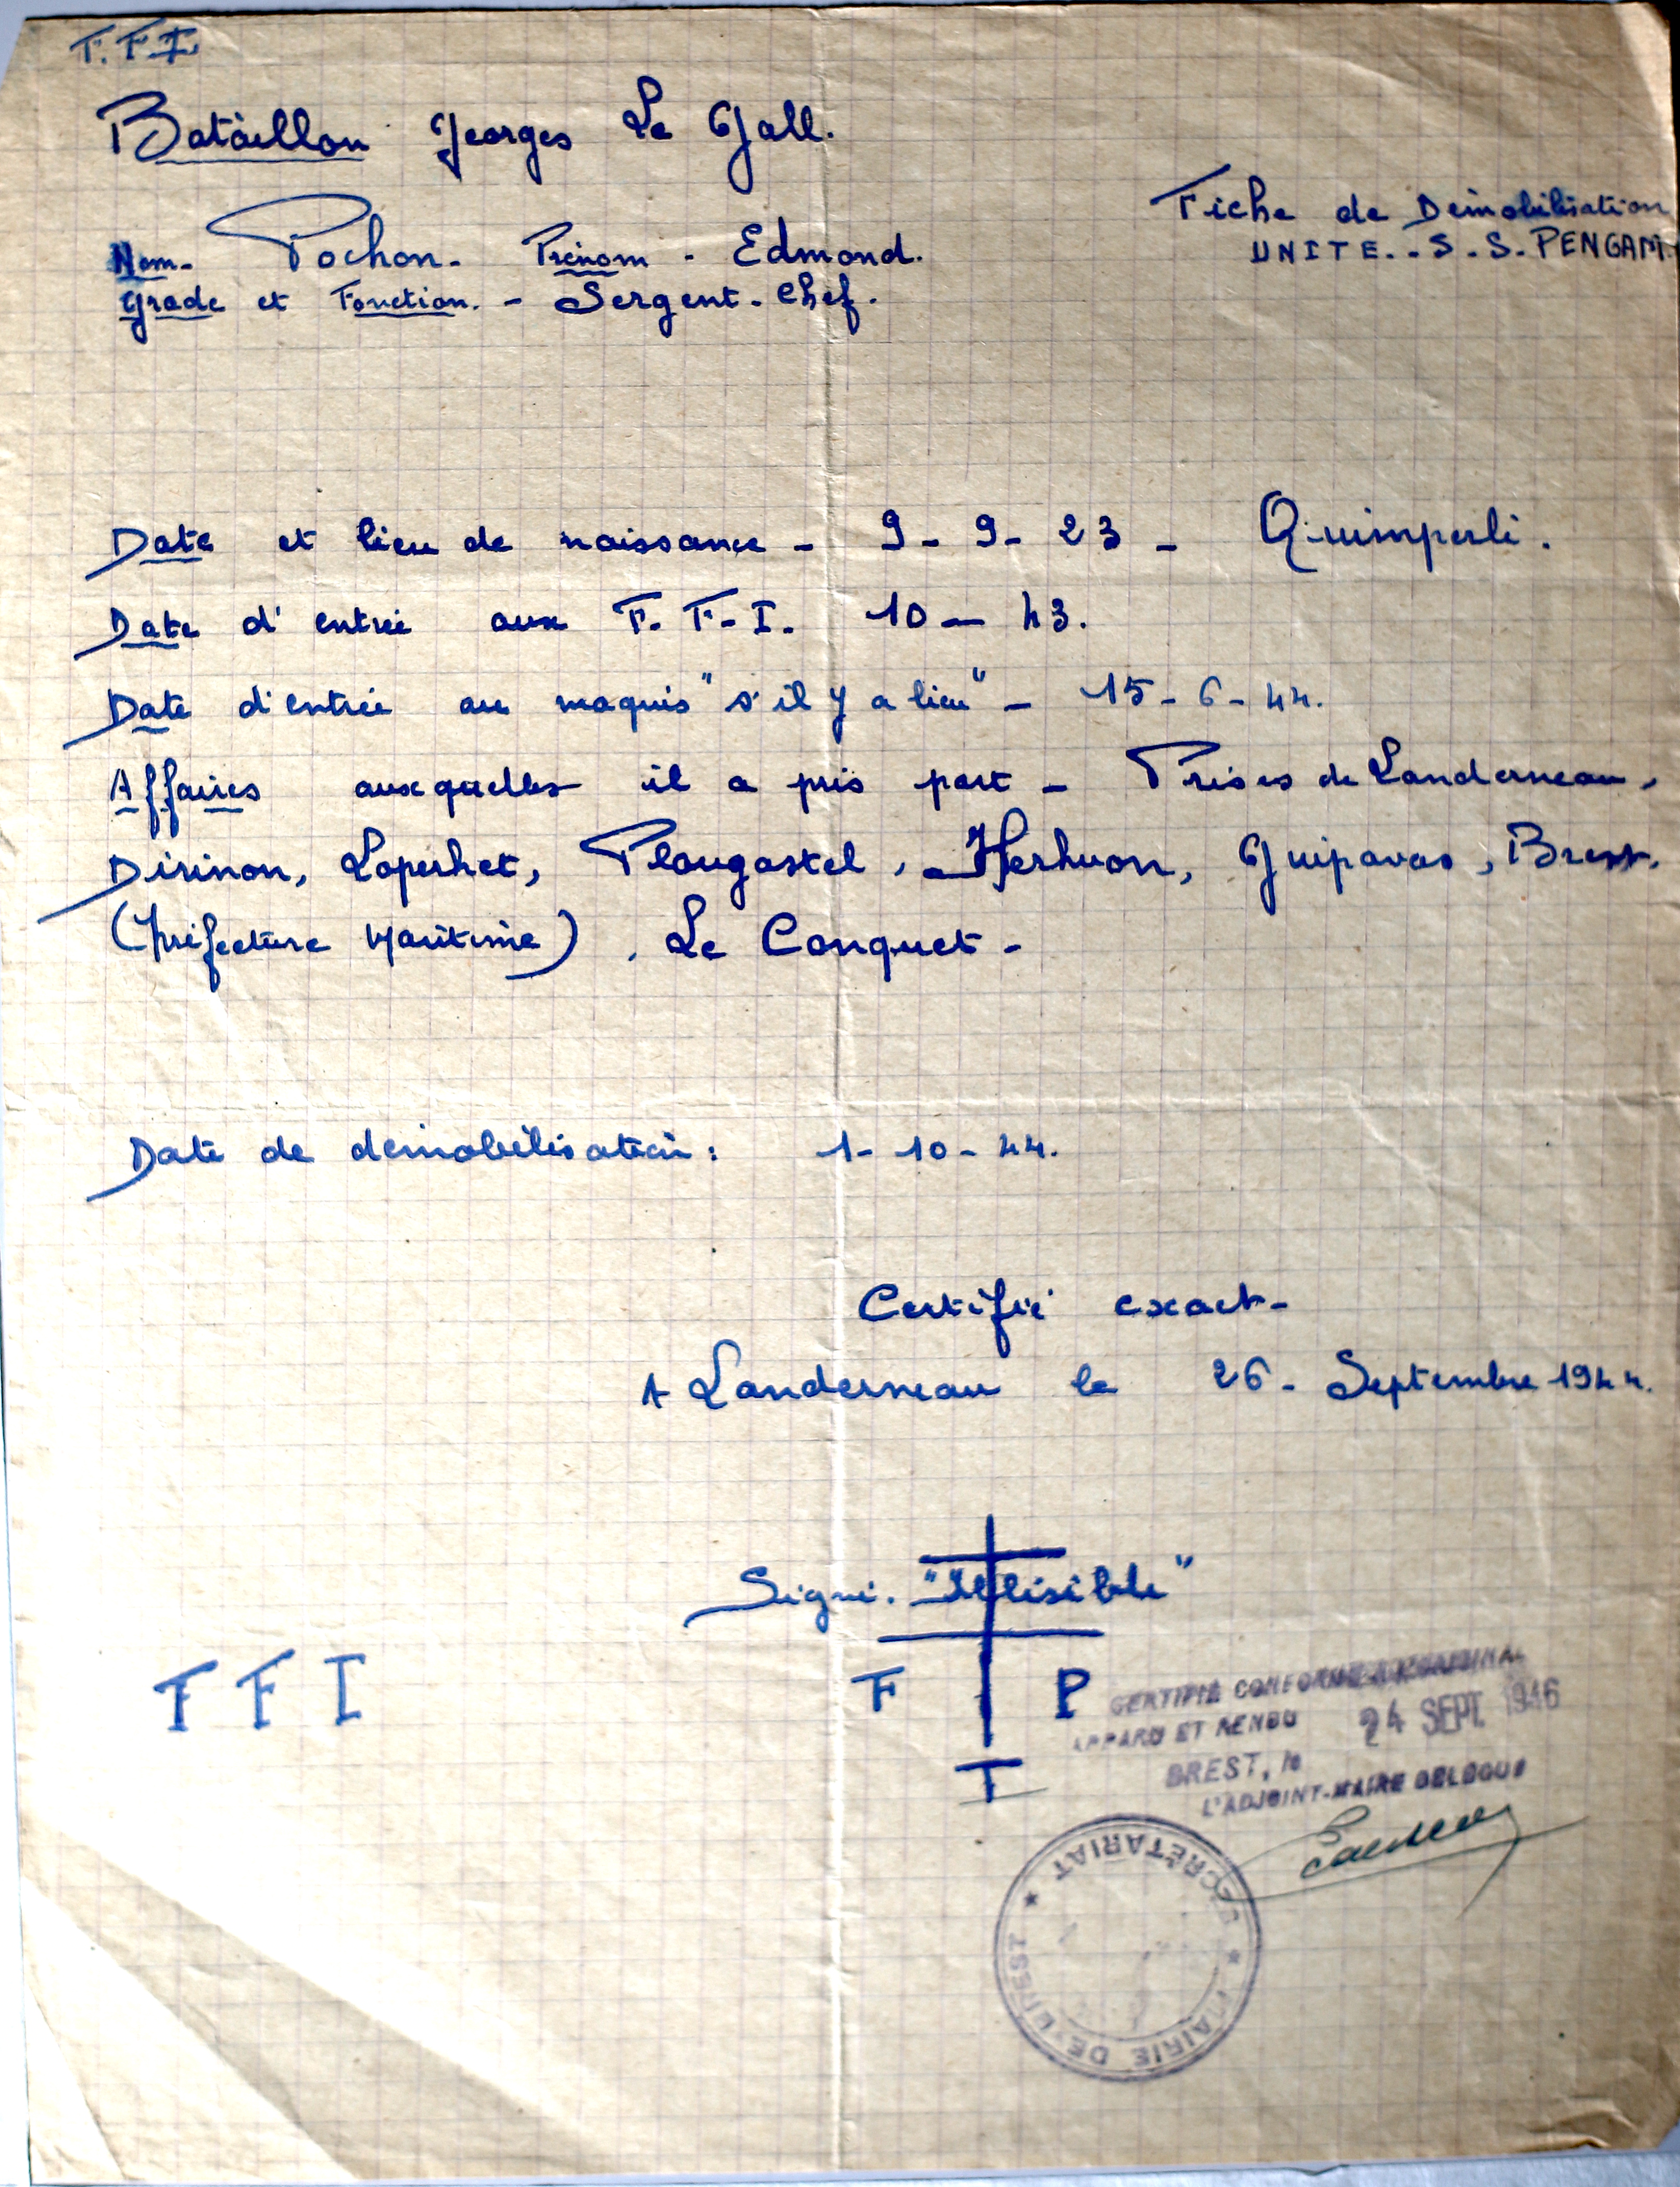 F.F.I
Bataillon Georges Le Gall.
Fiche de Démobilisation
UNITE.-S.S.PENGAM.
Nom- Pochon- Prénom - Edmond.
Grade et Fonction. - Sergent-Chef.
Date et lieu de naissance - 9-9-23 - Quimperlé.
Date d'entrée aux F.F.I. 10-43.
Date d'entrée au maquis "s'il y a lieu" - 15-6-44.
Affaires auxquelles il a pris part - Prises de Landerneau,
Dirinon, Loperhet, Plougastel, Kerhuon, Guipavas, Brest,
(Préfecture Maritime), Le Conquet-
Date de démobilisation: 1-10-44.
Certifié exact-
A Landerneau le 26-Septembre 1944.
Signé. "Illisible"
F F I
F P
T
CERTIFIE CONFORME A L'ORIGINAL
APPARU ET RENDU 24 SEPT. 1946
BREST, le
L'ADJOINT-MAIRE DELEGUE
SECRÉTARIAT * MAIRIE DE BREST *